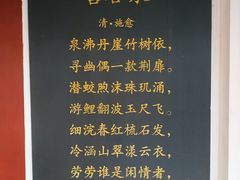 清·施愈
泉沸丹崖竹树依，
寻幽偶一款荆扉。
潜蛟煦沫珠玑涌，
游鲤翻波玉尺飞。
细浣春红梳石发，
冷涵山翠漾云衣，
劳劳谁是闲情者，